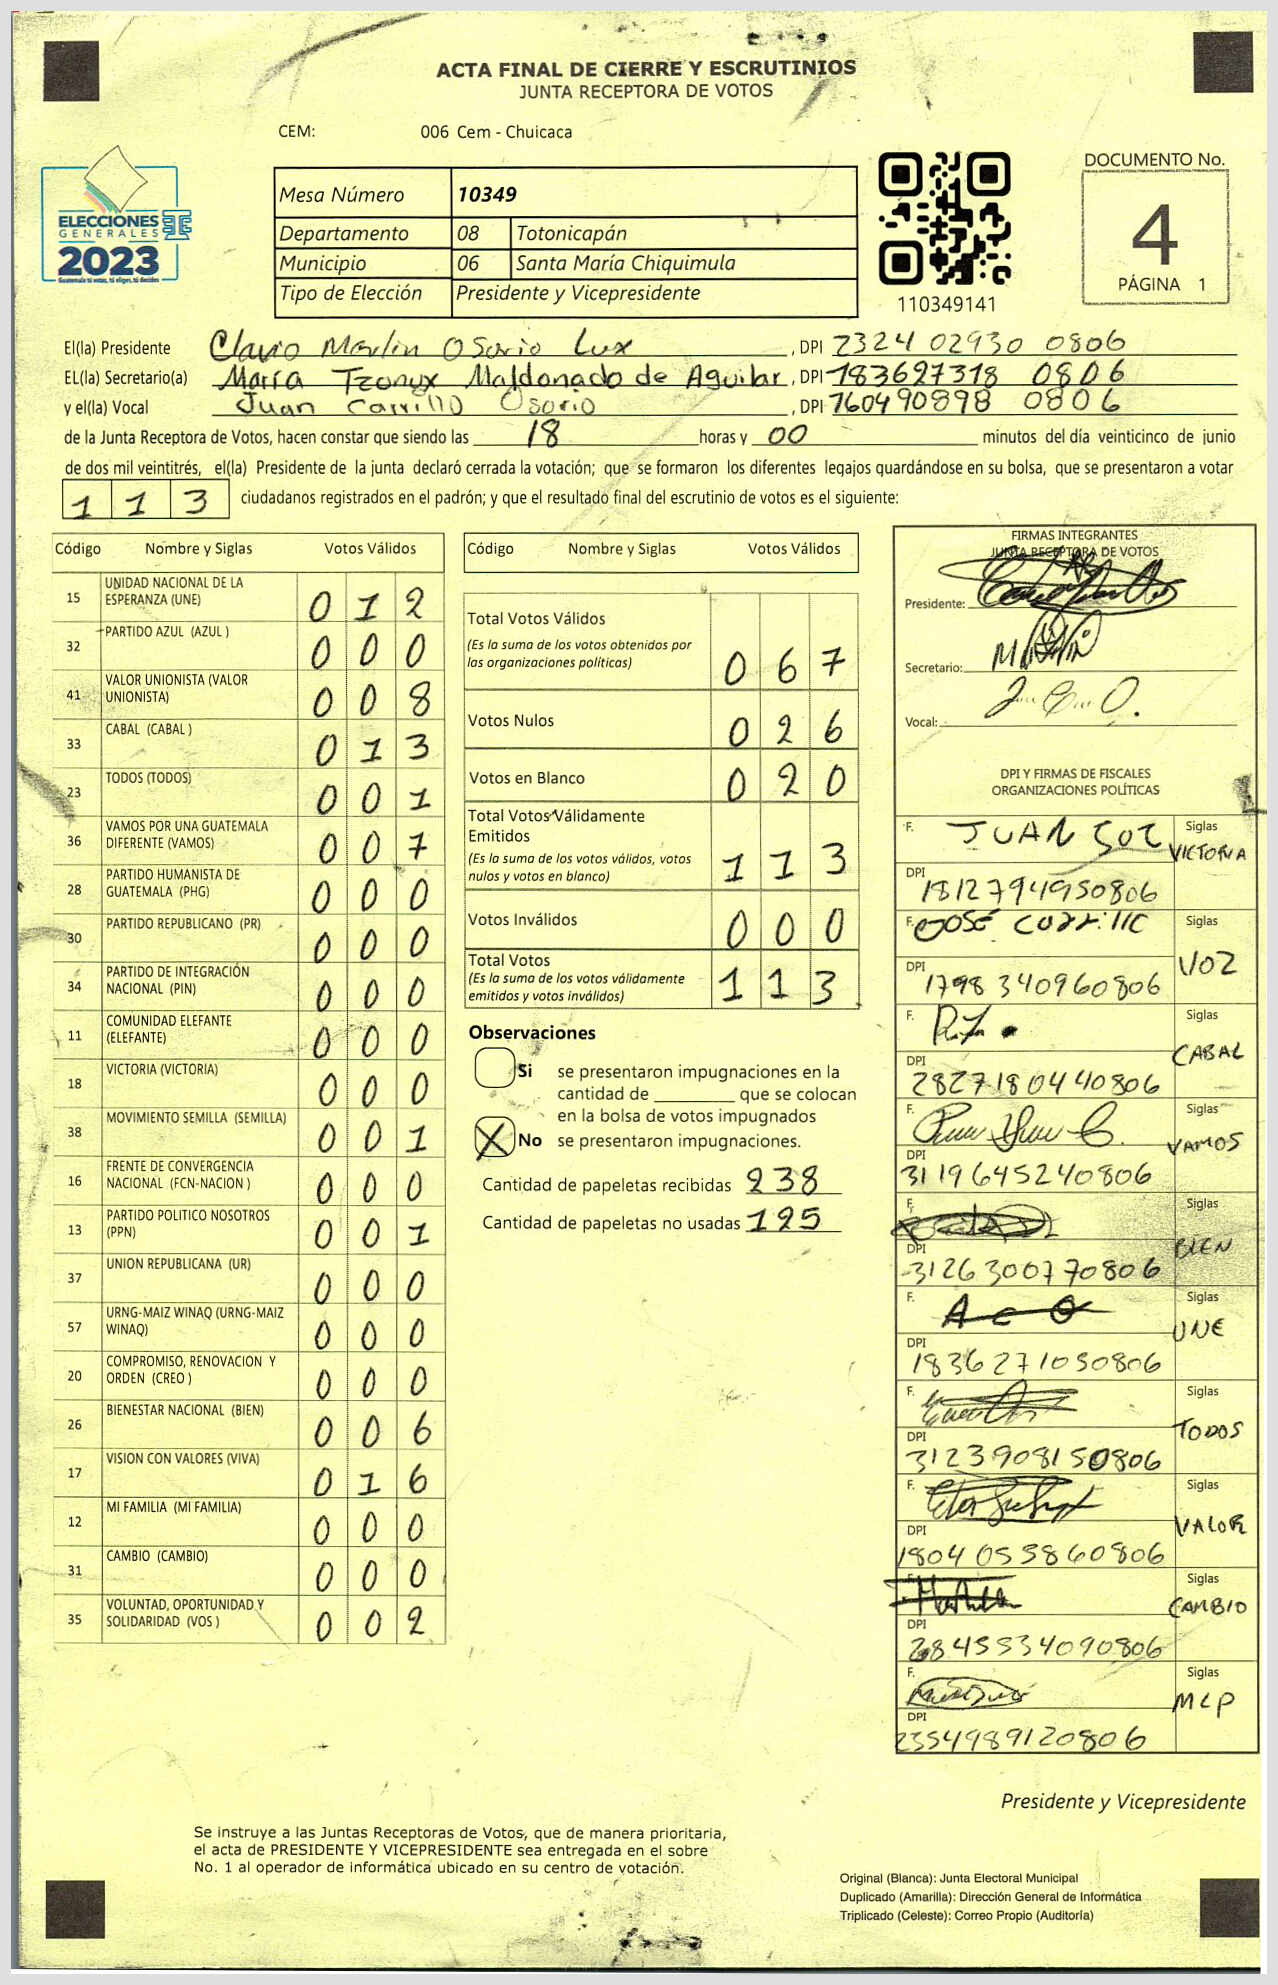 ACTA FINAL DE CIERRE Y ESCRUTINIOS
JUNTA RECEPTORA DE VOTOS
CEM: 006 Cem - Chuicaca
ELECCIONES
GENERALES
2023
Guatemala tú votas, tú eliges, tú decides
Mesa Número 10349
Departamento 08 Totonicapán
Municipio 06 Santa María Chiquimula
Tipo de Elección Presidente y Vicepresidente
110349141
DOCUMENTO No.
4
PÁGINA 1
El(la) Presidente Clavio Marlin Osorio Lux, DPI 2324 02930 0806
EL(la) Secretario(a) María Tzonyx Maldonado de Aguilar, DPI 183627318 0806
y el(la) Vocal Juan Carrillo Osorio, DPI 760490898 0806
de la Junta Receptora de Votos, hacen constar que siendo las 18 horas y 00 minutos del día veinticinco de junio
de dos mil veintitrés, el(la) Presidente de la junta declaró cerrada la votación; que se formaron los diferentes legajos guardándose en su bolsa, que se presentaron a votar
113 ciudadanos registrados en el padrón; y que el resultado final del escrutinio de votos es el siguiente:
Código Nombre y Siglas Votos Válidos
15 UNIDAD NACIONAL DE LA
ESPERANZA (UNE) 0 1 2
32 PARTIDO AZUL (AZUL ) 0 0 0
41 VALOR UNIONISTA (VALOR
UNIONISTA) 0 0 8
33 CABAL (CABAL ) 0 1 3
23 TODOS (TODOS) 0 0 1
36 VAMOS POR UNA GUATEMALA
DIFERENTE (VAMOS) 0 0 7
28 PARTIDO HUMANISTA DE
GUATEMALA (PHG) 0 0 0
30 PARTIDO REPUBLICANO (PR) 0 0 0
34 PARTIDO DE INTEGRACIÓN
NACIONAL (PIN) 0 0 0
11 COMUNIDAD ELEFANTE
(ELEFANTE) 0 0 0
18 VICTORIA (VICTORIA) 0 0 0
38 MOVIMIENTO SEMILLA (SEMILLA) 0 0 1
16 FRENTE DE CONVERGENCIA
NACIONAL (FCN-NACION ) 0 0 0
13 PARTIDO POLITICO NOSOTROS
(PPN) 0 0 1
37 UNION REPUBLICANA (UR) 0 0 0
57 URNG-MAIZ WINAQ (URNG-MAIZ
WINAQ) 0 0 0
20 COMPROMISO, RENOVACION Y
ORDEN (CREO ) 0 0 0
26 BIENESTAR NACIONAL (BIEN) 0 0 6
17 VISION CON VALORES (VIVA) 0 1 6
12 MI FAMILIA (MI FAMILIA) 0 0 0
31 CAMBIO (CAMBIO) 0 0 0
35 VOLUNTAD, OPORTUNIDAD Y
SOLIDARIDAD (VOS ) 0 0 2
Código Nombre y Siglas Votos Válidos
Total Votos Válidos
(Es la suma de los votos obtenidos por
las organizaciones políticas) 0 6 7
Votos Nulos 0 2 6
Votos en Blanco 0 2 0
Total Votos Válidamente
Emitidos
(Es la suma de los votos válidos, votos
nulos y votos en blanco) 1 1 3
Votos Inválidos 0 0 0
Total Votos
(Es la suma de los votos válidamente
emitidos y votos inválidos) 1 1 3
Observaciones
Si se presentaron impugnaciones en la
cantidad de ________ que se colocan
en la bolsa de votos impugnados
X No se presentaron impugnaciones.
Cantidad de papeletas recibidas 238
Cantidad de papeletas no usadas 125
FIRMAS INTEGRANTES
JUNTA RECEPTORA DE VOTOS
Presidente:
Secretario:
Vocal:
DPI Y FIRMAS DE FISCALES
ORGANIZACIONES POLÍTICAS
F. JUAN SOC Siglas VICTORIA
DPI 1812794950806
F. JOSÉ Carrillo Siglas VOZ
DPI 1798340960806
F. Siglas CABAL
DPI 2827180440806
F. Siglas VAMOS
DPI 3119645240806
F. Siglas BIEN
DPI 3126300770806
F. Siglas UNE
DPI 1836271050806
F. Siglas TODOS
DPI 3123908150806
F. Siglas VALOR
DPI 1804053860806
F. Siglas CAMBIO
DPI 2845534090806
F. Siglas MLP
DPI 2354989120806
Presidente y Vicepresidente
Se instruye a las Juntas Receptoras de Votos, que de manera prioritaria,
el acta de PRESIDENTE Y VICEPRESIDENTE sea entregada en el sobre
No. 1 al operador de informática ubicado en su centro de votación.
Original (Blanca): Junta Electoral Municipal
Duplicado (Amarilla): Dirección General de Informática
Triplicado (Celeste): Correo Propio (Auditoría)